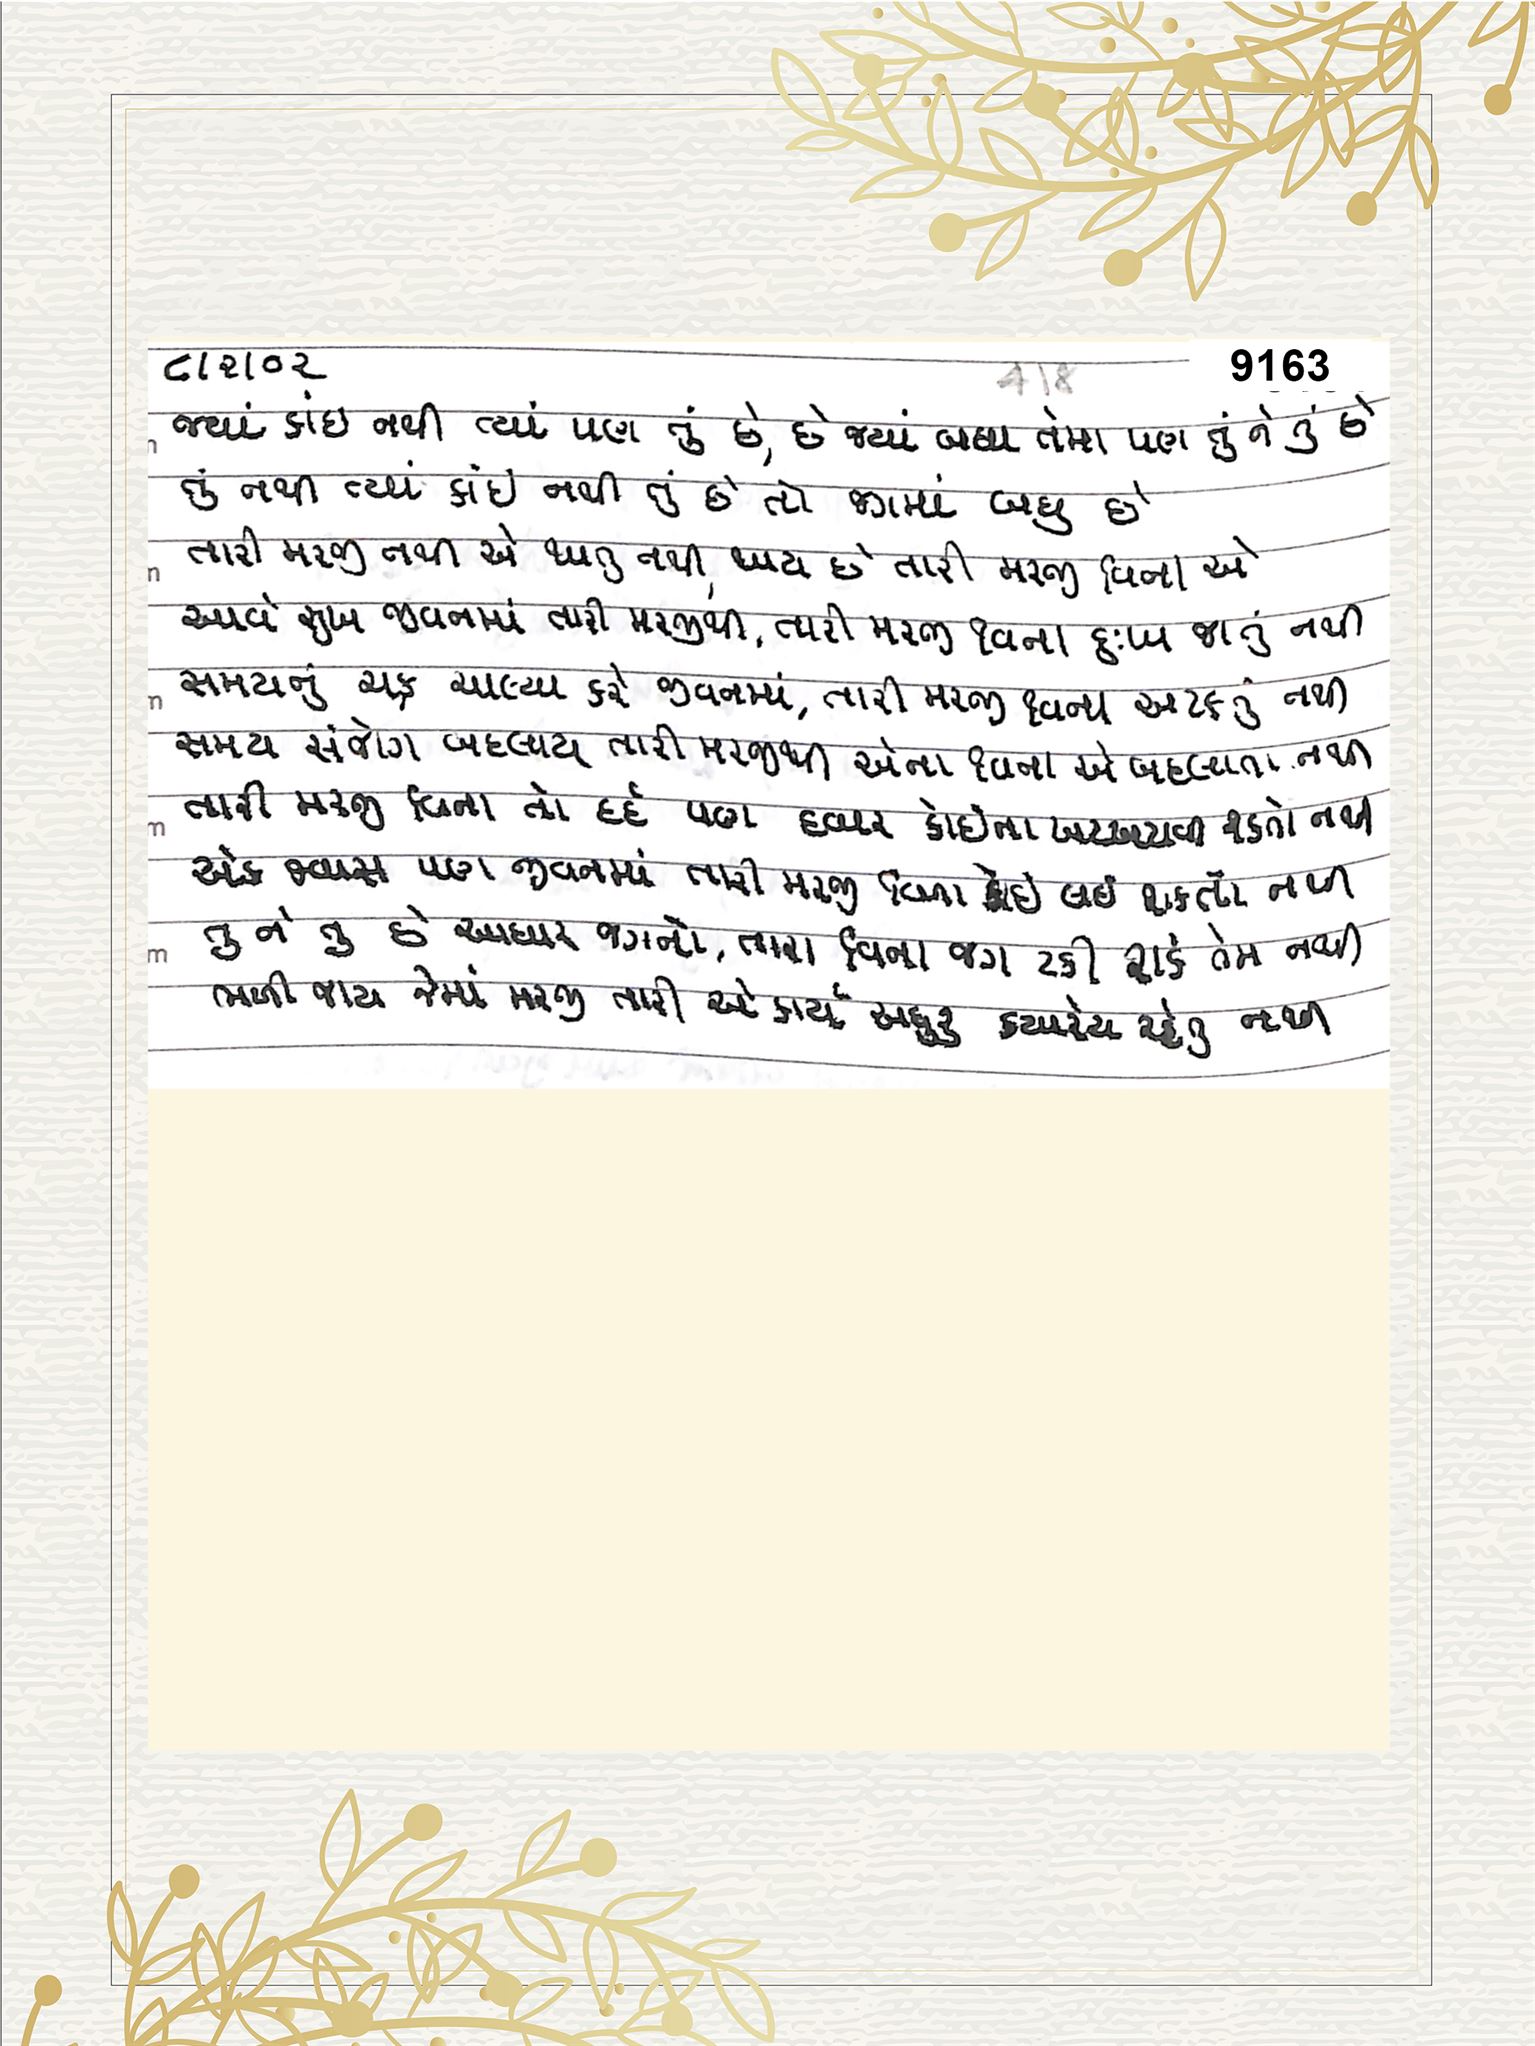 ૮।૨।૦૨
9163
જ્યાં કાંઇ નથી ત્યાં પણ તું છે, છે જ્યાં બધા તેમા પણ તું ને તું છે
તું નથી ત્યાં કાંઇ નથી તું છે તો જગમાં બધુ છે
તારી મરજી નથી એ થાતુ નથી, થાય છે તારી મરજી વિના એ
આવે સુખ જીવનમાં તારી મરજીથી, તારી મરજી વિના દુઃખ જાતું નથી
સમયનું ચક્ર ચાલ્યા કરે જીવનમાં, તારી મરજી વિના અટકતું નથી
સમય સંજોગ બદલાય તારી મરજીથી એના વિના એ બદલાતા નથી
તારી મરજી વિના તો દર્દ પણ દ્વાર કોઈના ખટખટાવી શકતો નથી
એક શ્વાસ પણ જીવનમાં તારી મરજી વિના કોઈ લઈ શકતો નથી
તુ ને તુ છે આધાર જગનો, તારા વિના જગ ટકી શકે તેમ નથી
ભળી જાય જેમાં મરજી તારી એ કાર્ય અધુરુ ક્યારેય રહેતુ નથી